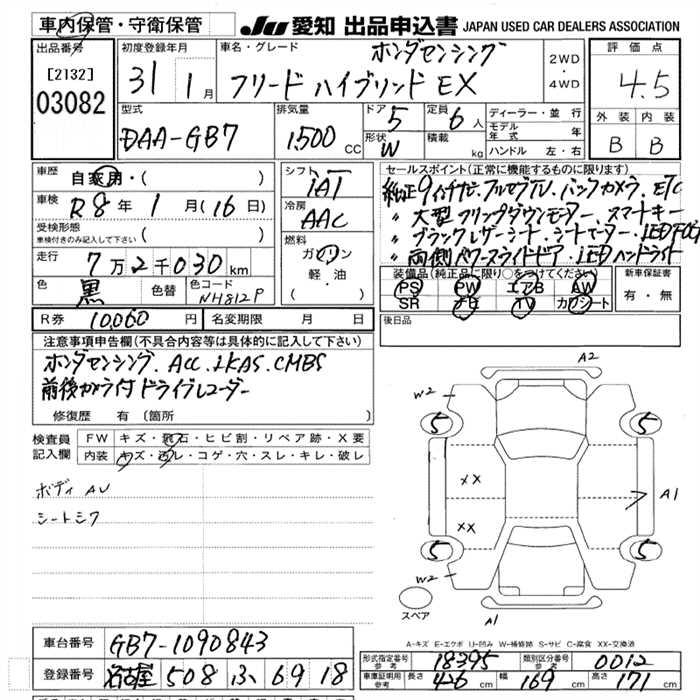 車内保管・守衛保管
JU 愛知 出品申込書 JAPAN USED CAR DEALERS ASSOCIATION
出品番号
[2132]
03082
初度登録年月
31 1月
車名・グレード
ホンダセンシング
フリード ハイブリッド EX
2WD
・
4WD
評価点
4.5
外装 内装
B B
型式
DAA-GB7
排気量
1500 CC
ドア
5
定員
6人
形状
W
積載
kg
ディーラー・並行
モデル年式 年
ハンドル 左・右
車歴
自家用・( )
車検
R8年 1月(16日)
受検形態
車検付きのみ記入して下さい ( )
走行
7万2千030km
色
黒
色替
色コード
NH812P
シフト
IAT
冷房
AAC
燃料
ガソリン
軽油
( )
セールスポイント(正常に機能するものに限ります)
純正9インチナビ.フルセグTV.バックカメラ.ETC
〃 大型フリップダウンモニター.スマートキー
〃 ブラックレザーシート.シートヒーター.LEDFOG
〃 両側パワースライドドア.LEDヘッドライト
装備品(純正品に限り○をつけてください)
PS PW エアB AW
SR ナビ TV カワシート
新車保証書
有・無
R券 10,060円
名変期限 月 日
後日品
注意事項申告欄(不具合内容等は具体的に記入して下さい)
ホンダセンシング.ACC.LKAS.CMBS
前後カメラ付ドライブレコーダー
修復歴 有 (箇所 )
検査員記入欄
FW キズ・飛石・ヒビ割・リペア跡・X要
内装 キズ・汚レ・コゲ・穴・スレ・キレ・破レ
ボディ AU
シートシワ
A2
W2
5 5
XX
XX
A1
5 5
W2
A1
スペア
A-キズ E-エクボ U-凹み W-補修跡 S-サビ C-腐食 XX-交換済
車台番号 GB7-1090843
登録番号 名古屋 508 ふ 6918
形式指定番号 参考 18395
類別区分番号 参考 0012
車庫証明用 参考 長さ 426 cm 幅 169 cm 高さ 171 cm